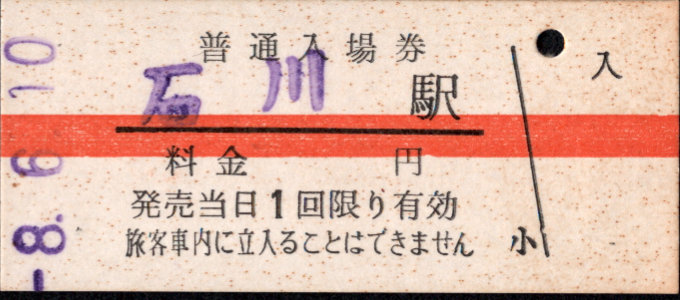 普通入場券
石川駅
料金 円
発売当日1回限り有効
旅客車内に立入ることはできません
小
入
-8.-6.10